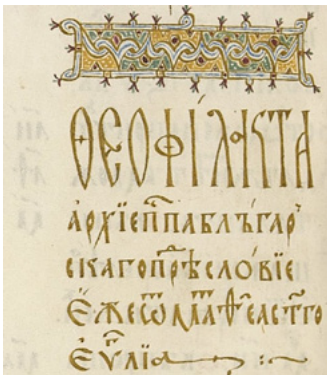 ѲЕОФІЛАКТА
архїеп҃па блъгар
скаго прѣсловїе
еже ѡ маѳеа ст҃го
еѵ҃лїа